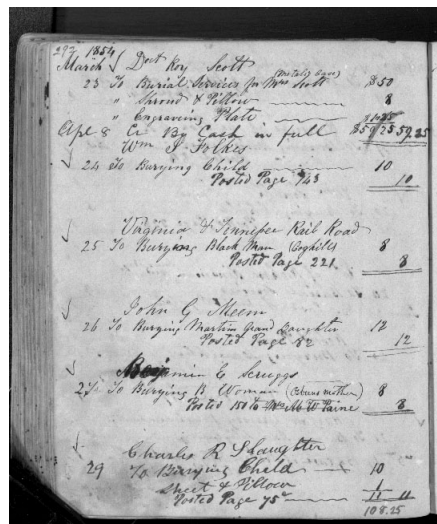 292 1854
March Doct Roy Scott
23 To Burial Services for Mrs Scott (Metalic Case) $50
" Shroud & Pillow 8
" Engraving Plate 1.25
Apl 8 Cr By Cash in full $59.25 59.25
Wm J Folkes
24 To Burying Child 10
Posted Page 743 10
Virginia & Tennessee Rail Road
25 To Burying Black Man 8
Posted Page 221 8
John G Meem
26 To Burying Martin Grand Daughter 12
Posted Page 82 12
Benjamin C Scruggs
To Burying B Woman (mother) 8
Posted 150 to Mrs M W Paine 8
Charles R Slaughter
29 To Burying Child 10
Sheet & Pillow 1
Posted Page 75 11 11
108.25